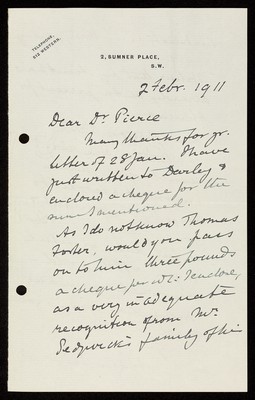 TELEPHONE,
512 WESTERN.
2, SUMNER PLACE,
S.W.
2 Febr. 1911
Dear Dr. Pierce
Many thanks for yr.
letter of 28 Jan. I have
just written to Darley &
enclosed a cheque for the
sum I mentioned.
As I do not know Thomas
Foster, would you pass
on to him three pounds
a cheque for wh: I enclose,
as a very inadequate
recognition from Mr.
Sedgwick's family of his